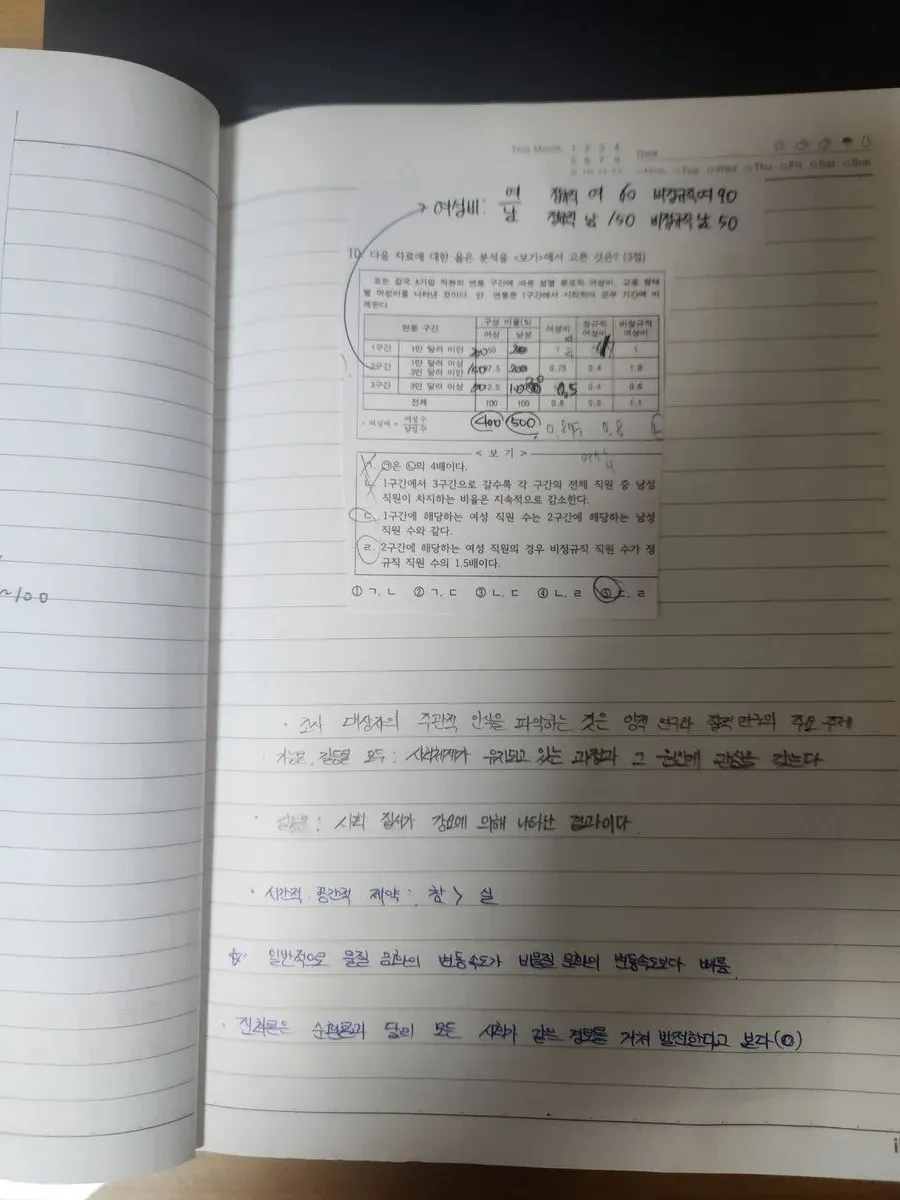 This Month 1 2 3 4
5 6 7 8
Date
Tue Wed Thu Fri Sat Sun
여성비: 여/남 정규직 여 60 비정규직 여 90
정규직 남 150 비정규직 남 50
10. 다음 자료에 대한 옳은 분석을 <보기>에서 고른 것은? (3점)
표는 갑국 A기업 직원의 연봉 구간에 따른 성별 분포와 여성비, 고용 형태
별 여성비를 나타낸 것이다. 단, 연봉은 1구간에서 시작하여 근무 기간에 비
례한다.
연봉 구간 구성 비율(%) 여성비 정규직 여성비 비정규직 여성비
여성 남성
1구간 1만 달러 미만 200 50 200 1 1
2구간 1만 달러 이상 3만 달러 미만 150 37.5 200 0.75 0.4 1.8
3구간 3만 달러 이상 12.5 100 0.5 0.4 0.6
전체 100 100 0.8 0.5 1.1
* 여성비 = 여성 수/남성 수 400 500 0.8
< 보 기 >
ㄱ. ㉠은 ㉡의 4배이다.
ㄴ. 1구간에서 3구간으로 갈수록 각 구간의 전체 직원 중 남성
직원이 차지하는 비율은 지속적으로 감소한다.
ㄷ. 1구간에 해당하는 여성 직원 수는 2구간에 해당하는 남성
직원 수와 같다.
ㄹ. 2구간에 해당하는 여성 직원의 경우 비정규직 직원 수가 정
규직 직원 수의 1.5배이다.
① ㄱ, ㄴ ② ㄱ, ㄷ ③ ㄴ, ㄷ ④ ㄴ, ㄹ ⑤ ㄷ, ㄹ
~100
· 조사 대상자의 주관적 인식을 파악하는 것은 양적 연구와 질적 연구의 주요 주제
· 기능론, 갈등론 모두 : 사회체제가 유지되고 있는 과정과 그 원인에 관심을 갖는다
· 갈등론 : 사회 질서가 강요에 의해 나타난 결과이다
· 시간적 공간적 제약 : 참 > 실
☆ 일반적으로 물질 문화의 변동속도가 비물질 문화의 변동속도보다 빠름
· 진화론은 순환론과 달리 모든 사회가 같은 경로를 거쳐 발전한다고 보다 (O)